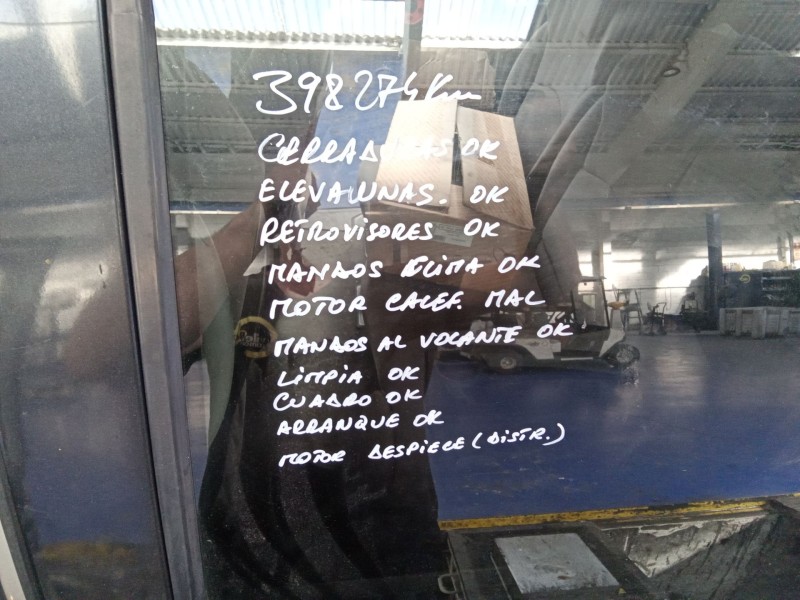 398274Km
CERRADURAS OK
ELEVALUNAS. OK
RETROVISORES OK
MANDOS CLIMA OK
MOTOR CALEF. MAL
MANDOS AL VOLANTE OK
LIMPIA OK
CUADRO OK
ARRANQUE OK
MOTOR DESPIECE (DISTR.)